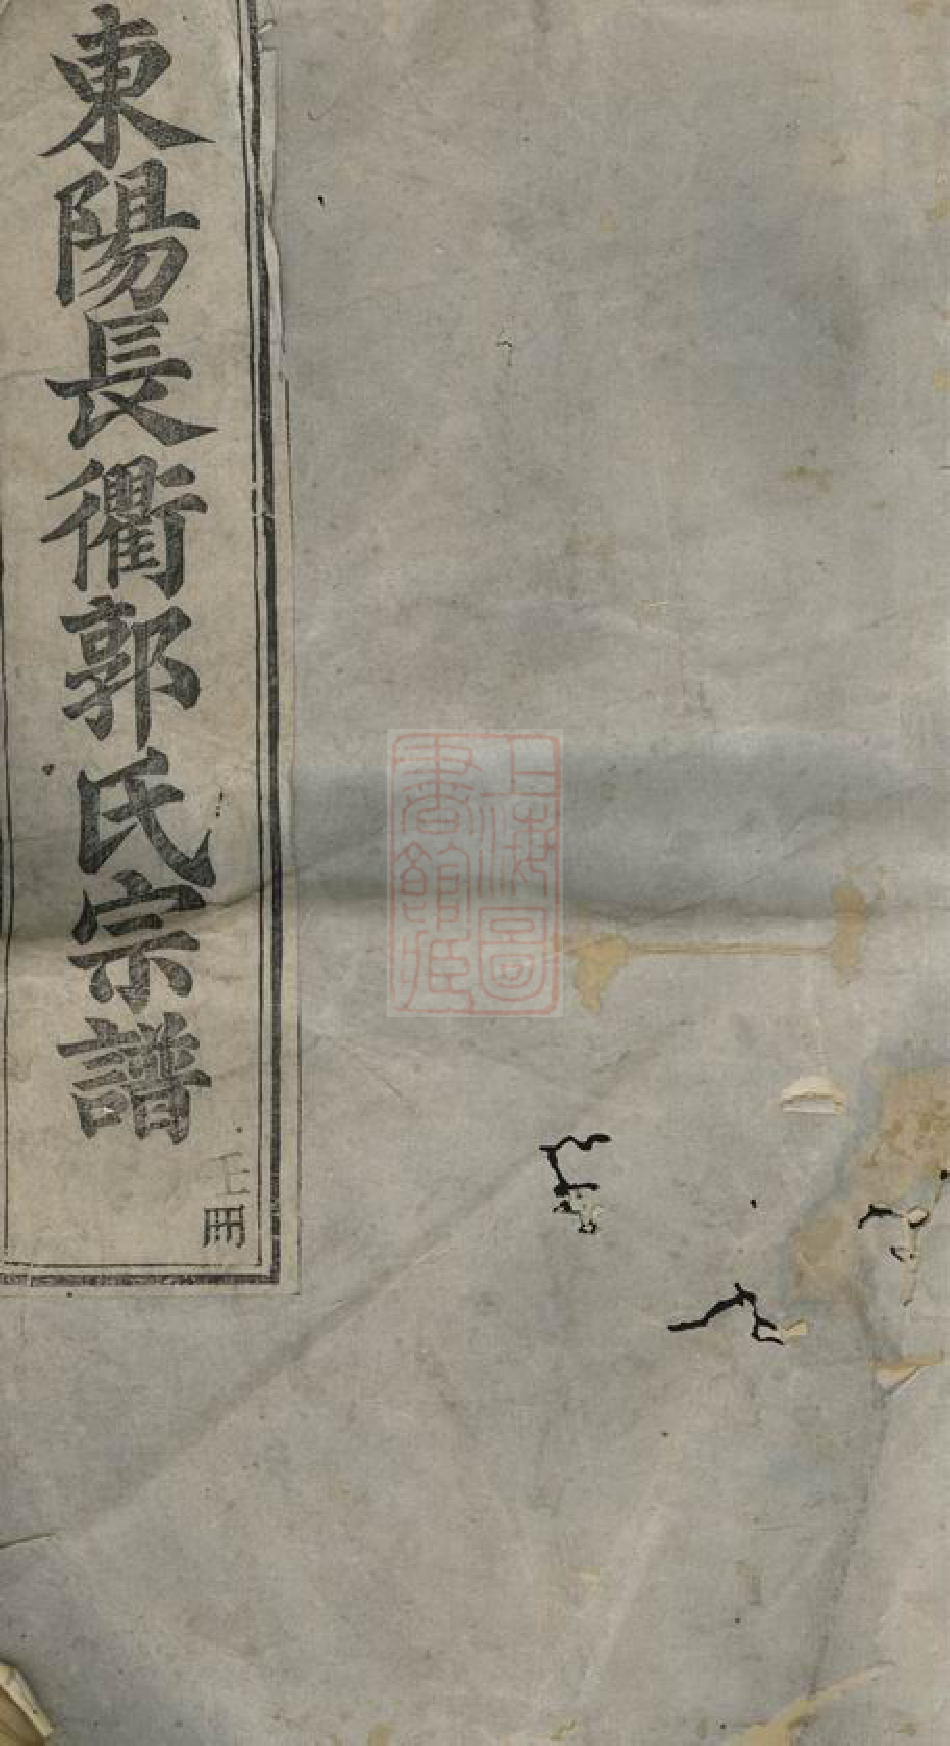 東陽長衢郭氏宗譜
上海圖書館藏